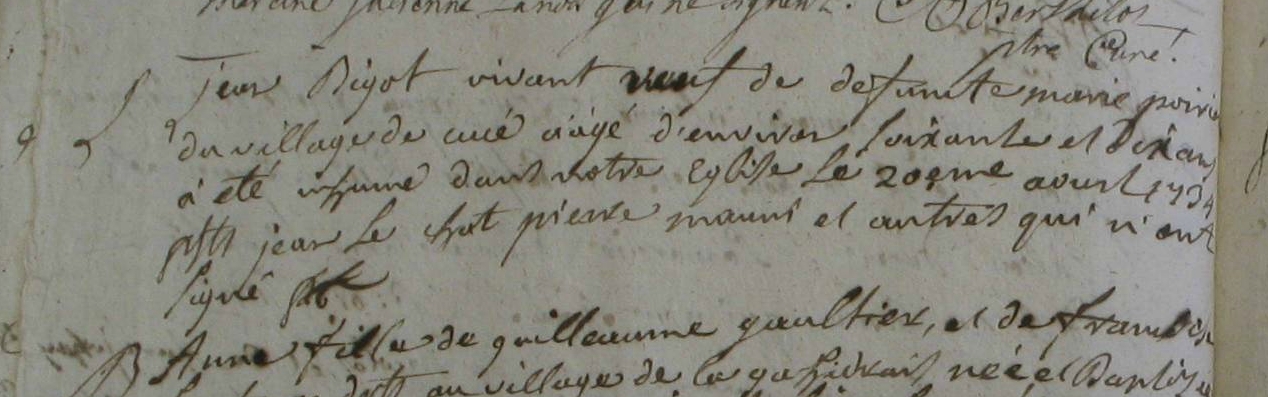 qui ne signent. Berthelot
ptre Curé.
S jean Bigot vivant veuf de defunte marie poirie
du village de cucé aagé d'environ soixante et dix ans
a été inhumé dans notre Eglise le 20eme aoust 1734
pstts jean le chat pierre mauni et autres qui n'ont
signé
B Anne fille de guilleaume gaultier, et de francoise
dtt au village de la née et Baptisée